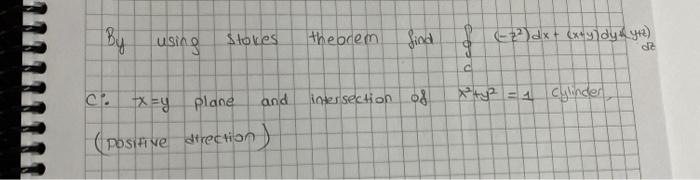 By using stokes theorem find ∮ (-z²)dx + (x+y)dy + (y+z)
dz
C
C: x=y plane and intersection of x²+y² = 1 cylinder,
(positive direction)